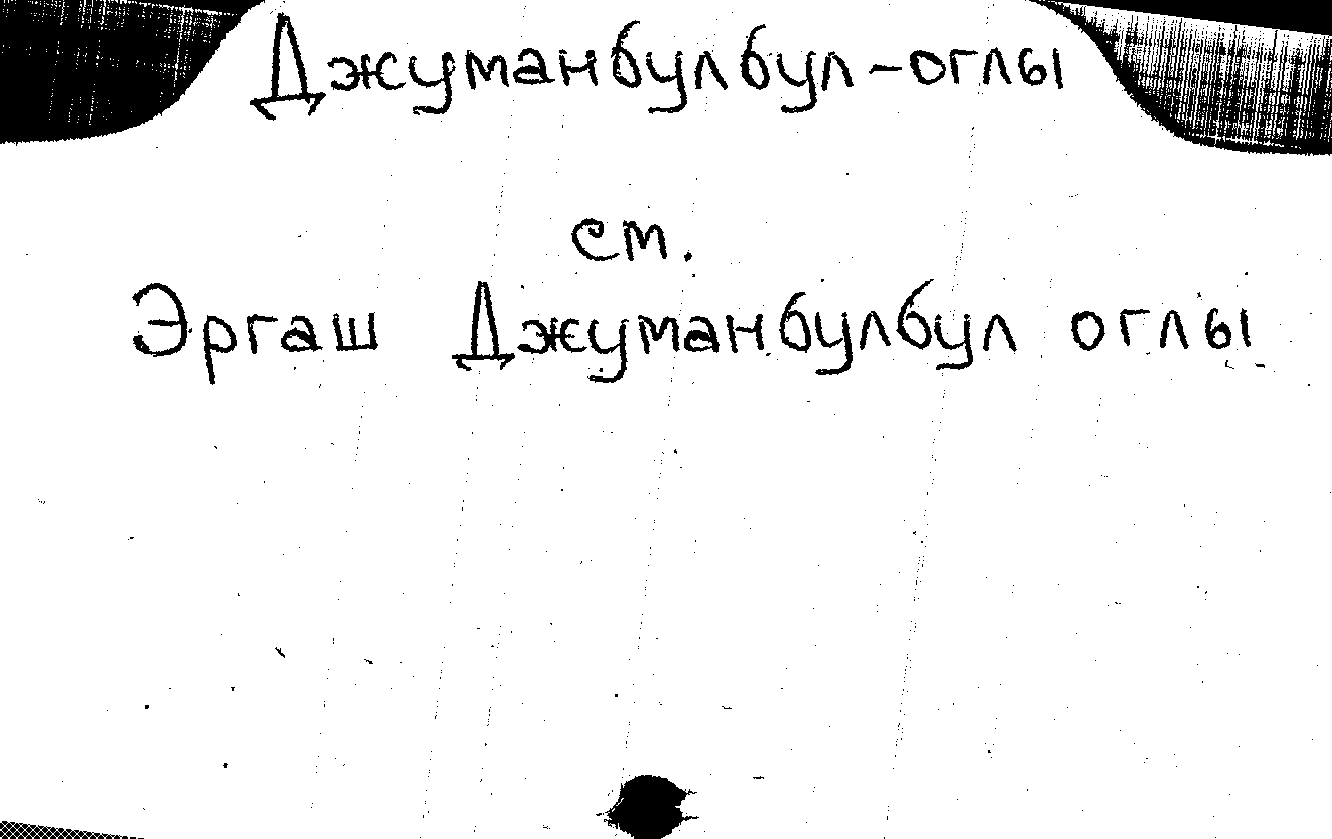 Джуманбулбул-оглы
см.
Эргаш Джуманбулбул оглы